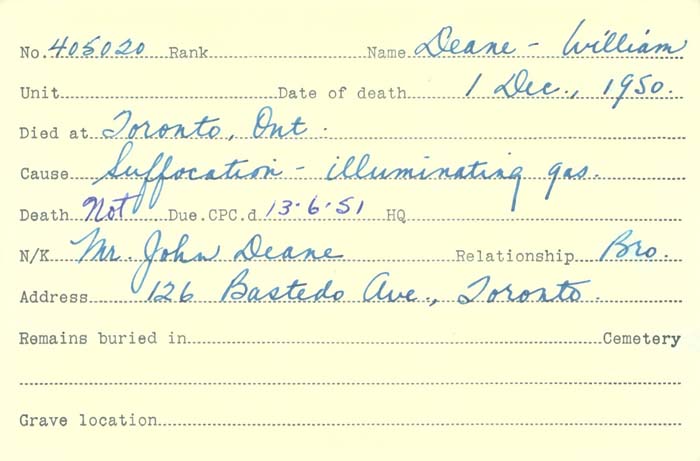 No. 405020 Rank Name Deane - William
Unit Date of death 1 Dec., 1950.
Died at Toronto, Ont.
Cause Suffocation - illuminating gas.
Death Not Due.CPC.d 13·6·51 HQ
N/K Mr. John Deane Relationship Bro.
Address 126 Bastedo Ave., Toronto.
Remains buried in Cemetery
Grave location